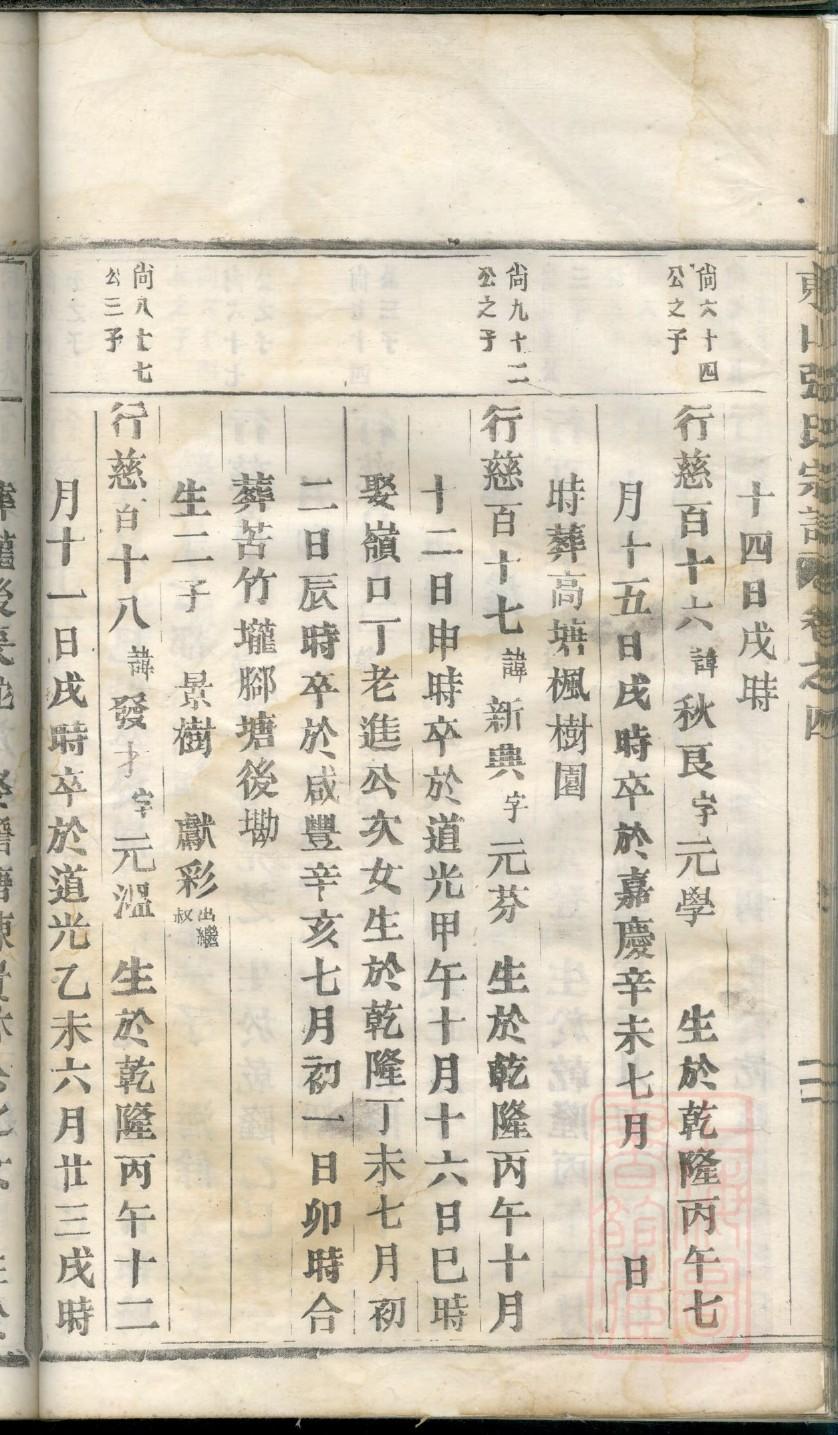 東山張氏宗譜 卷之四
十四日戌時
尙六十四
公之子
行慈百十六諱秋良字元學 生於乾隆丙午七
月十五日戌時卒於嘉慶辛未七月 日
時葬高塘楓樹園
尙九十二
公之子
行慈百十七諱新興字元芬 生於乾隆丙午十月
十二日申時卒於道光甲午十月十六日巳時
娶嶺口丁老進公次女生於乾隆丁未七月初
二日辰時卒於咸豐辛亥七月初一日卯時合
葬苦竹壠腳塘後坳
生二子 景樹 獻彩出繼叔
尙八十七
公三子
行慈百十八諱發才字元溫 生於乾隆丙午十二
月十一日戌時卒於道光乙未六月廿三戌時